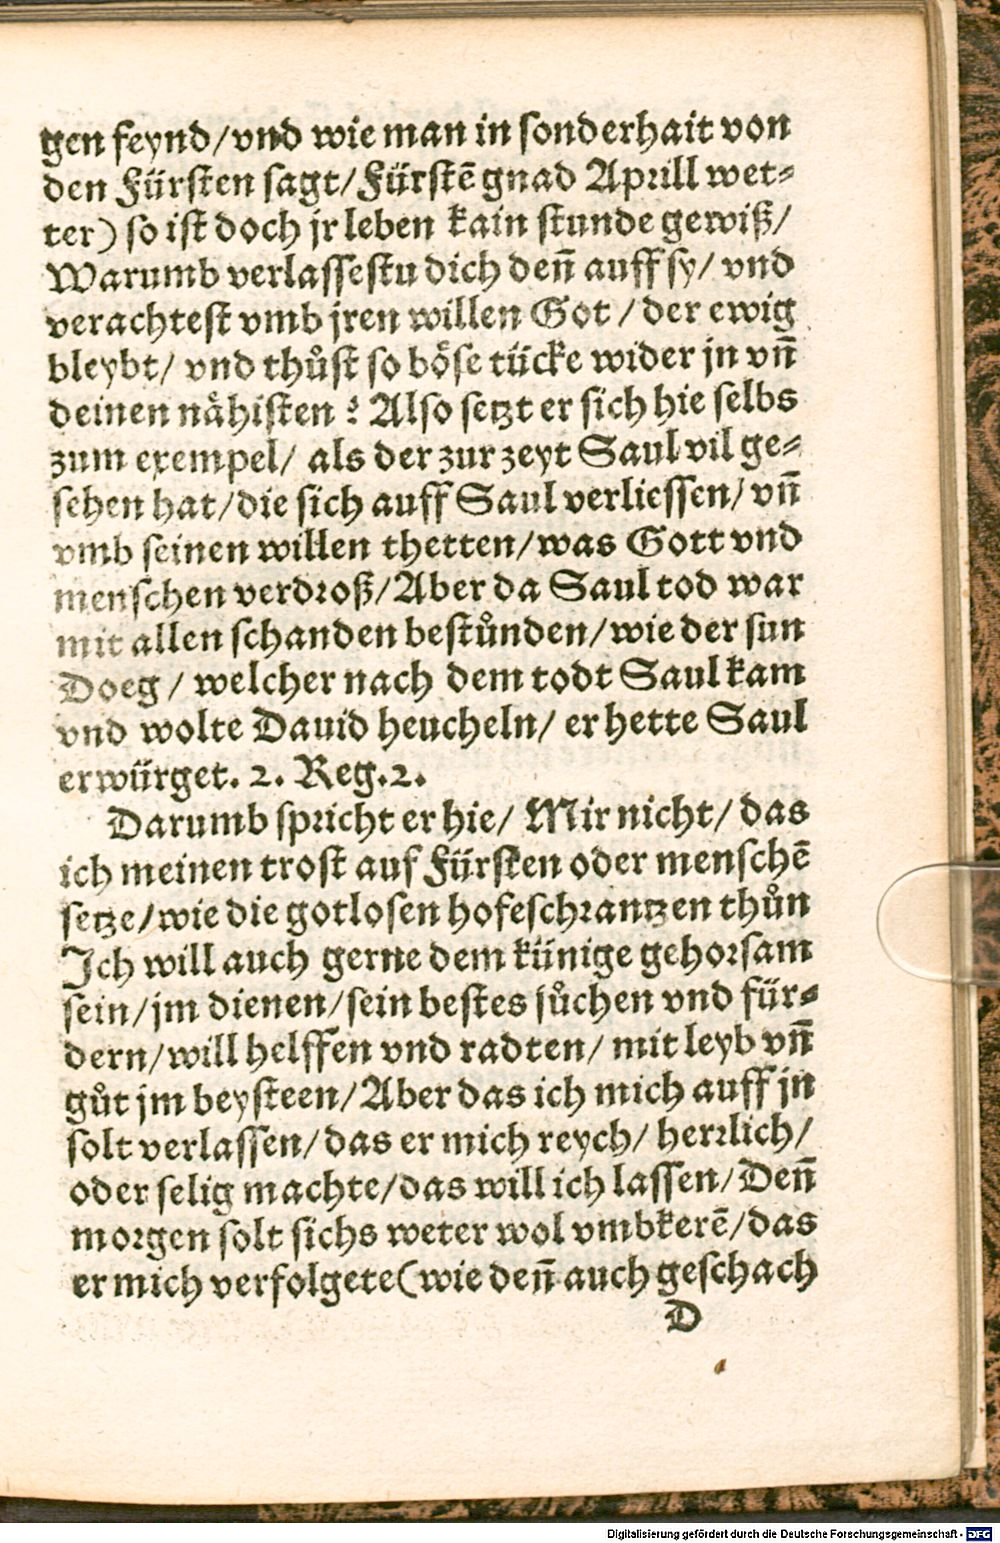 gen feynd/vnd wie man in sonderhait von
den Fürsten sagt/Fürstē gnad Aprill wet-
ter) so ist doch jr leben kain stunde gewiß/
Warumb verlassestu dich deñ auff sy/ vnd
verachtest vmb jren willen Got / der ewig
bleybt/ vnd thůst so böse tücke wider jn vñ
deinen nähisten ? Also setzt er sich hie selbs
zum exempel/ als der zur zeyt Saul vil ge-
sehen hat/die sich auff Saul verliessen/ vñ
vmb seinen willen thetten/was Gott vnd
menschen verdroß/Aber da Saul tod war
mit allen schanden bestůnden/wie der sun
Doeg / welcher nach dem todt Saul kam
vnd wolte Dauid heucheln/ er hette Saul
erwürget. 2. Reg.2.
Darumb spricht er hie/ Mir nicht/ das
ich meinen trost auf Fürsten oder menschē
setze/wie die gotlosen hofeschrantzen thůn
Ich will auch gerne dem künige gehorsam
sein/jm dienen/sein bestes sůchen vnd für-
dern/will helffen vnd radten/ mit leyb vñ
gůt jm beysteen/Aber das ich mich auff jn
solt verlassen/das er mich reych/ herrlich/
oder selig machte/das will ich lassen/Deñ
morgen solt sichs weter wol vmbkerē/das
er mich verfolgete(wie deñ auch geschach
D
Digitalisierung gefördert durch die Deutsche Forschungsgemeinschaft - DFG